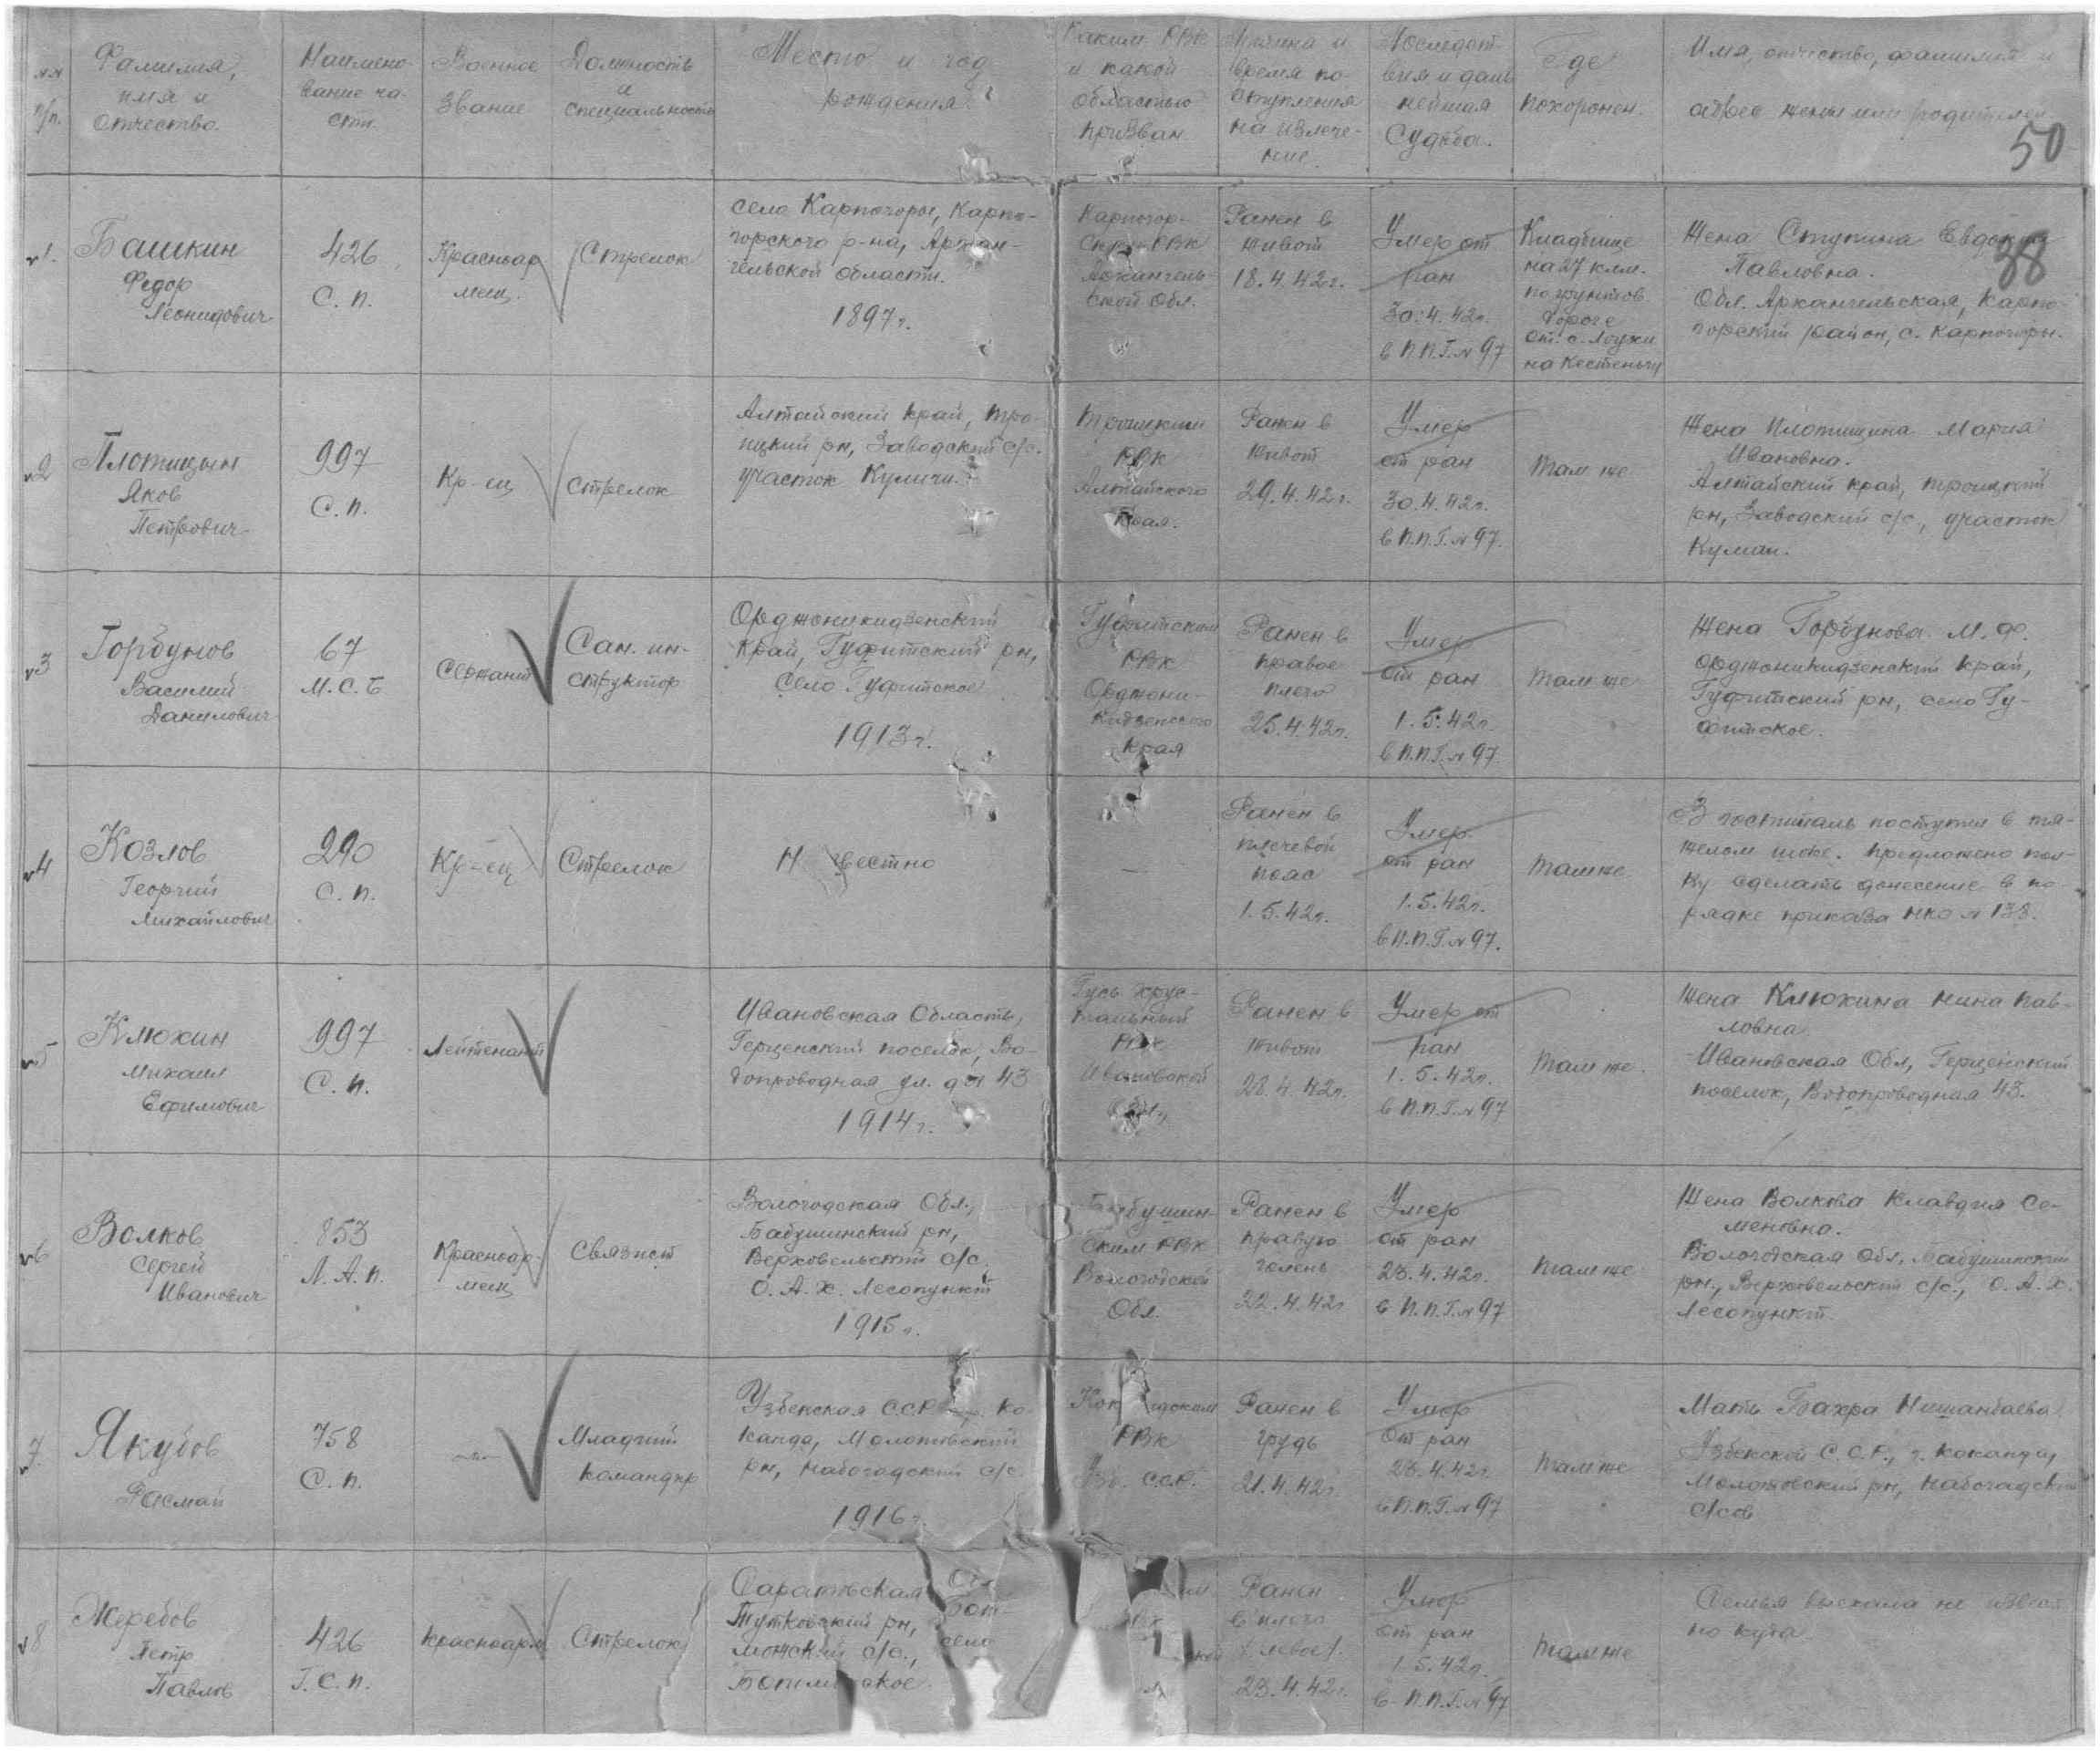 №№ п/п.
Фамилия,
имя и
отчество.
Наимено-
вание ча-
сти.
Военное
звание
Должность
и
специальность
Место и год
рождения
Каким РВК
и какой
областью
призван
Причина и
время по-
ступления
на излече-
ние.
Последст-
вия и даль
нейшая
судьба.
Где
похоронен.
Имя, отчество, фамилия и
адрес жены или родителей
50
1.
Башкин
Федор
Леонидович
426
С. п.
Красноар
меец.
Стрелок
село Карпогоры, Карпо-
горского р-на, Архан-
гельской области.
1897 г.
Карпогор-
ским РВК
Архангель-
ской обл.
Ранен в
живот
18.4.42г.
Умер от
ран
30.4.42г.
в П.П.Г. № 97
Кладбище
на 27 клм.
по грунтов.
дороге
от с. Лоухи
на Кестеньгу
Жена Ступина Евдокия
38
Павловна.
Обл. Архангельская, Карпо-
горский район, с. Карпогоры.
2
Плотицын
Яков
Петрович
997
С. п.
Кр-ец
Стрелок
Алтайский край, Тро-
ицкий рн, Заводский с/с.
участок
Троицким
РВК
Алтайского
края.
Ранен в
живот
29.4.42г.
Умер
от ран
30.4.42г.
в П.П.Г. № 97.
там же
Жена Плотицина Мария
Ивановна.
Алтайский край, Троицкий
рн, Заводский с/с, участок
3
Горбунов
Василий
Данилович
67
М. С. Б
Сержант
Сан. ин-
структор
Орджоникидзенский
край, рн,
село
1913 г.
РВК
Орджони-
кидзенского
края
Ранен в
правое
плечо
25.4.42г.
Умер
от ран
1.5.42г.
в П.П.Г. № 97.
там же
Жена Горбунова М. Ф.
Орджоникидзенский край,
рн, село
4
Козлов
Георгий
Михайлович
290
С. п.
Кр-ец
Стрелок
Н звестно
—
Ранен в
плечевой
пояс
1.5.42г.
Умер
от ран
1.5.42г.
в П.П.Г. № 97.
там же
В госпиталь поступил в тя-
желом шоке. Предложено пол-
ку сделать донесение в по
рядке приказа НКО № 138.
5
Клюкин
Михаил
Ефимович
997
С. п.
Лейтенант
Ивановская Область,
Герценский поселок, Во-
допроводная ул. д. 43
1914 г.
Гусь Хрус-
тальный
РВК
Ивановской
обл.
Ранен в
живот
28.4.42г.
Умер от
ран
1.5.42г.
в П.П.Г. № 97
там же.
Жена Клюкина Нина Пав-
ловна.
Ивановская Обл, Герценский
поселок, Водопроводная 43.
6
Волков
Сергей
Иванович
853
Л. А. п.
Красноар-
меец
Связист
Вологодская Обл.,
Бабушинский рн,
Верховельский с/с.
О. А. Х. Лесопункт
1915 г.
Бабушин-
ским РВК
Вологодской
Обл.
Ранен в
правую
голень
22.4.42г
Умер
от ран
23.4.42г.
в П.П.Г. № 97
там же
Жена Волкова Клавдия Се-
меновна.
Вологодская Обл, Бабушинский
рн., Верховельский с/с., О. А. Х.
Лесопункт.
7.
Якубов
Расмай
758
С. п.
-"-
Младший
командир
Узбекская ССР Ко-
канда, Молотовский
рн, с/с.
1916 г.
РВК
Узб. С.С.Р.
Ранен в
грудь
21.4.42г.
Умер
от ран
23.4.42г.
в П.П.Г. № 97
там же
Мать Бахра Нишанбаева
Узбекской С.С.Р., г. Коканда,
Молотовский рн,
с/сов
8
Жеребов
Петр
Павлов
426
Г. С. п.
Красноарм
Стрелок
Саратовская
рн,
с/с., село
Ранен
в плечо
(левое).
23.4.42г.
Умер
от ран
1.5.42г.
в П.П.Г. № 97
там же
Семья выехала не извест
но куда